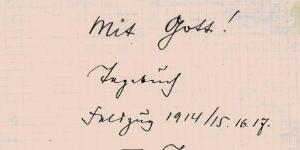 Mit Gott!
Tagebuch
Feldzug 1914/15.16.17.